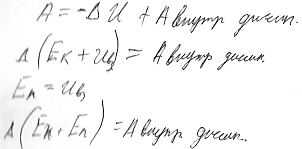 A = -ΔU + A внутр дисип.
Δ(Eк + Uвз) = A внутр дисип.
Eп = Uвз
Δ(Eк + Eп) = A внутр дисип.